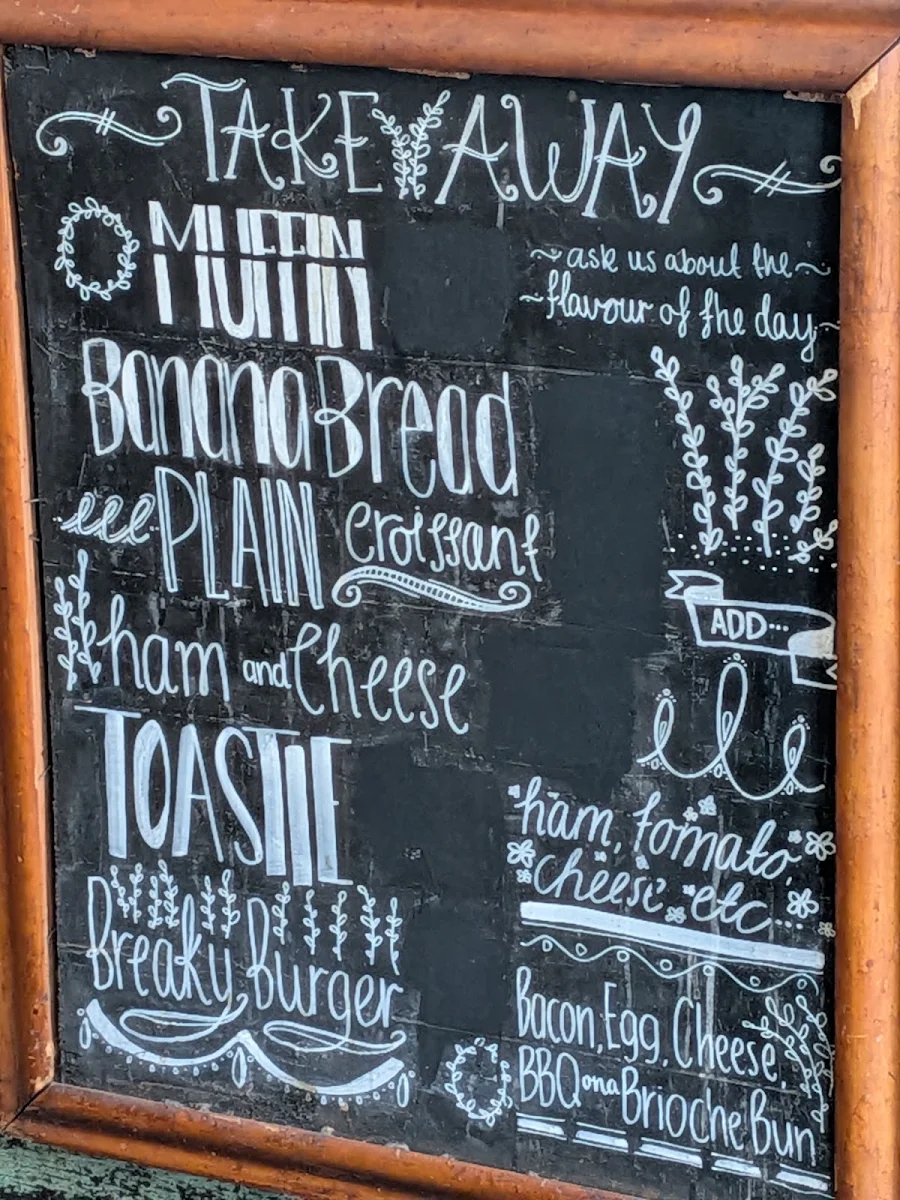 TAKE AWAY
MUFFIN
~ask us about the~
~flavour of the day~
Banana Bread
PLAIN croissant
ADD...
ham and Cheese
TOASTIE
ham, tomato,
cheese etc...
Breaky Burger
Bacon, Egg, Cheese,
BBQ on a Brioche Bun